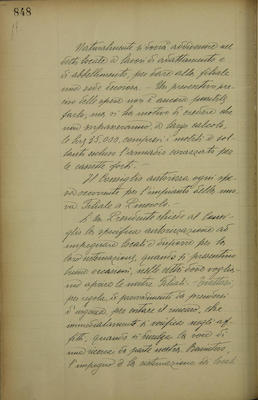 848
Naturalmente si dovrà addivenire nei
detti locali a lavori di adattamento e
di abbellimento, per dare alla filiale
una sede decorosa. - Un preventivo pre-
ciso delle spese non è ancora possibile
farlo, ma vi ha motivo di credere che
non sorpasseranno, a largo calcolo,
le lire 35.000, compresi i mobili e sol-
tanto escluso l'armadio corazzato per
le cassette forti. -
Il Consiglio autorizza ogni spe-
sa occorrente per l'impianto della nuo-
va Filiale a Pinerolo. -
Il Presidente chiede al Consi-
glio la specifica autorizzazione ad
impegnare locali e disporre per la
loro sistemazione, quando si presentino
buone occasioni, nelle città dove voglia-
mo aprire le nostre Filiali.
per regola, di provvedimenti da prendersi
d'urgenza, per evitare il rincaro, che
immediatamente si verifica negli af-
fitti, quando si divulga la voce di
una ricerca da parte nostra.
l'impegno e la sistemazione dei locali